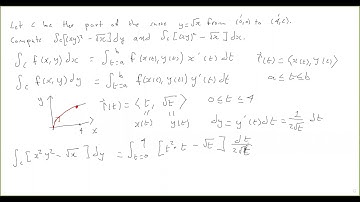 Let C be the part of the curve y=√x from (0,0) to (4,2).
Compute ∫c[(xy)²-√x]dy and ∫c[(xy)²-√x]dx.
∫c f(x,y)dx = ∫_{t=a}^{b} f(x(t),y(t)) x'(t) dt r⃗(t)=⟨x(t),y(t)⟩
∫c f(x,y)dy = ∫_{t=a}^{b} f(x(t),y(t)) y'(t)dt a≤t≤b
y r⃗(t)=⟨t, √t⟩ 0≤t≤4
x(t) y(t) dy=y'(t)dt=1/(2√t) dt
4 x
∫c[x²y²-√x]dy = ∫_{t=0}^{4} [t²·t-√t] dt/(2√t)